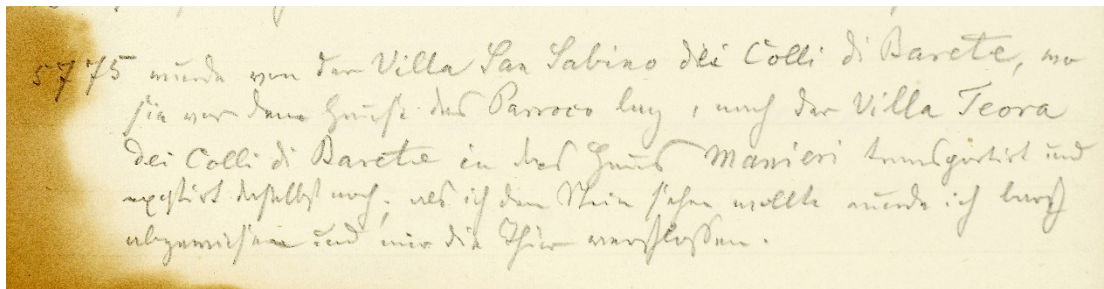 5775 wurde von der Villa San Sabino dei Colli di Barete, wo
sie vor dem Hause des Parroco lag, nach der Villa Teora
dei Colli di Barete in das Haus Manieri transportirt und
existirt daselbst noch; als ich den Stein sehen wollte wurde ich barsch
abgewiesen und mir die Thür verschlossen.